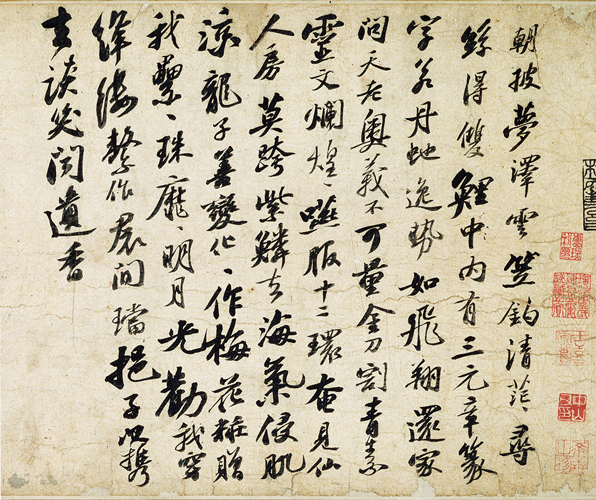 朝披夢澤雲笠釣清茫〻尋
絲得雙鯉中内有三元章篆
字若丹虵逸勢如飛翔還家
問天老奧義不可量金刀割青素
靈文爛煌〻嚥服十二環奄見仙
人房莫跨紫鱗去海氣侵肌
涼龍子善變化〻作梅花粧贈
我纍〻珠靡〻明月光勸我穿
絳縷繫作裠間璫挹子以攜
去談笑聞遺香